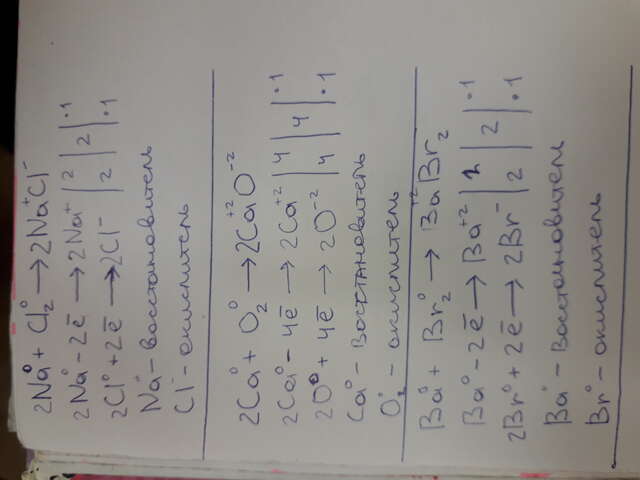 2Na⁰ + Cl₂⁰ → 2Na⁺Cl⁻
2Na⁰ - 2ē → 2Na⁺ | 2 | 2 | ·1
2Cl⁰ + 2ē → 2Cl⁻ | 2 | 2 | ·1
Na⁰ - восстановитель
Cl⁰ - окислитель
2Ca⁰ + O₂⁰ → 2Ca⁺²O⁻²
2Ca⁰ - 4ē → 2Ca⁺² | 4 | 4 | ·1
2O⁰ + 4ē → 2O⁻² | 4 | 4 | ·1
Ca⁰ - восстановитель
O₂⁰ - окислитель
Ba⁰ + Br₂⁰ → Ba⁺²Br₂
Ba⁰ - 2ē → Ba⁺² | 2 | 2 | ·1
2Br⁰ + 2ē → 2Br⁻ | 2 | 2 | ·1
Ba⁰ - восстановитель
Br⁰ - окислитель